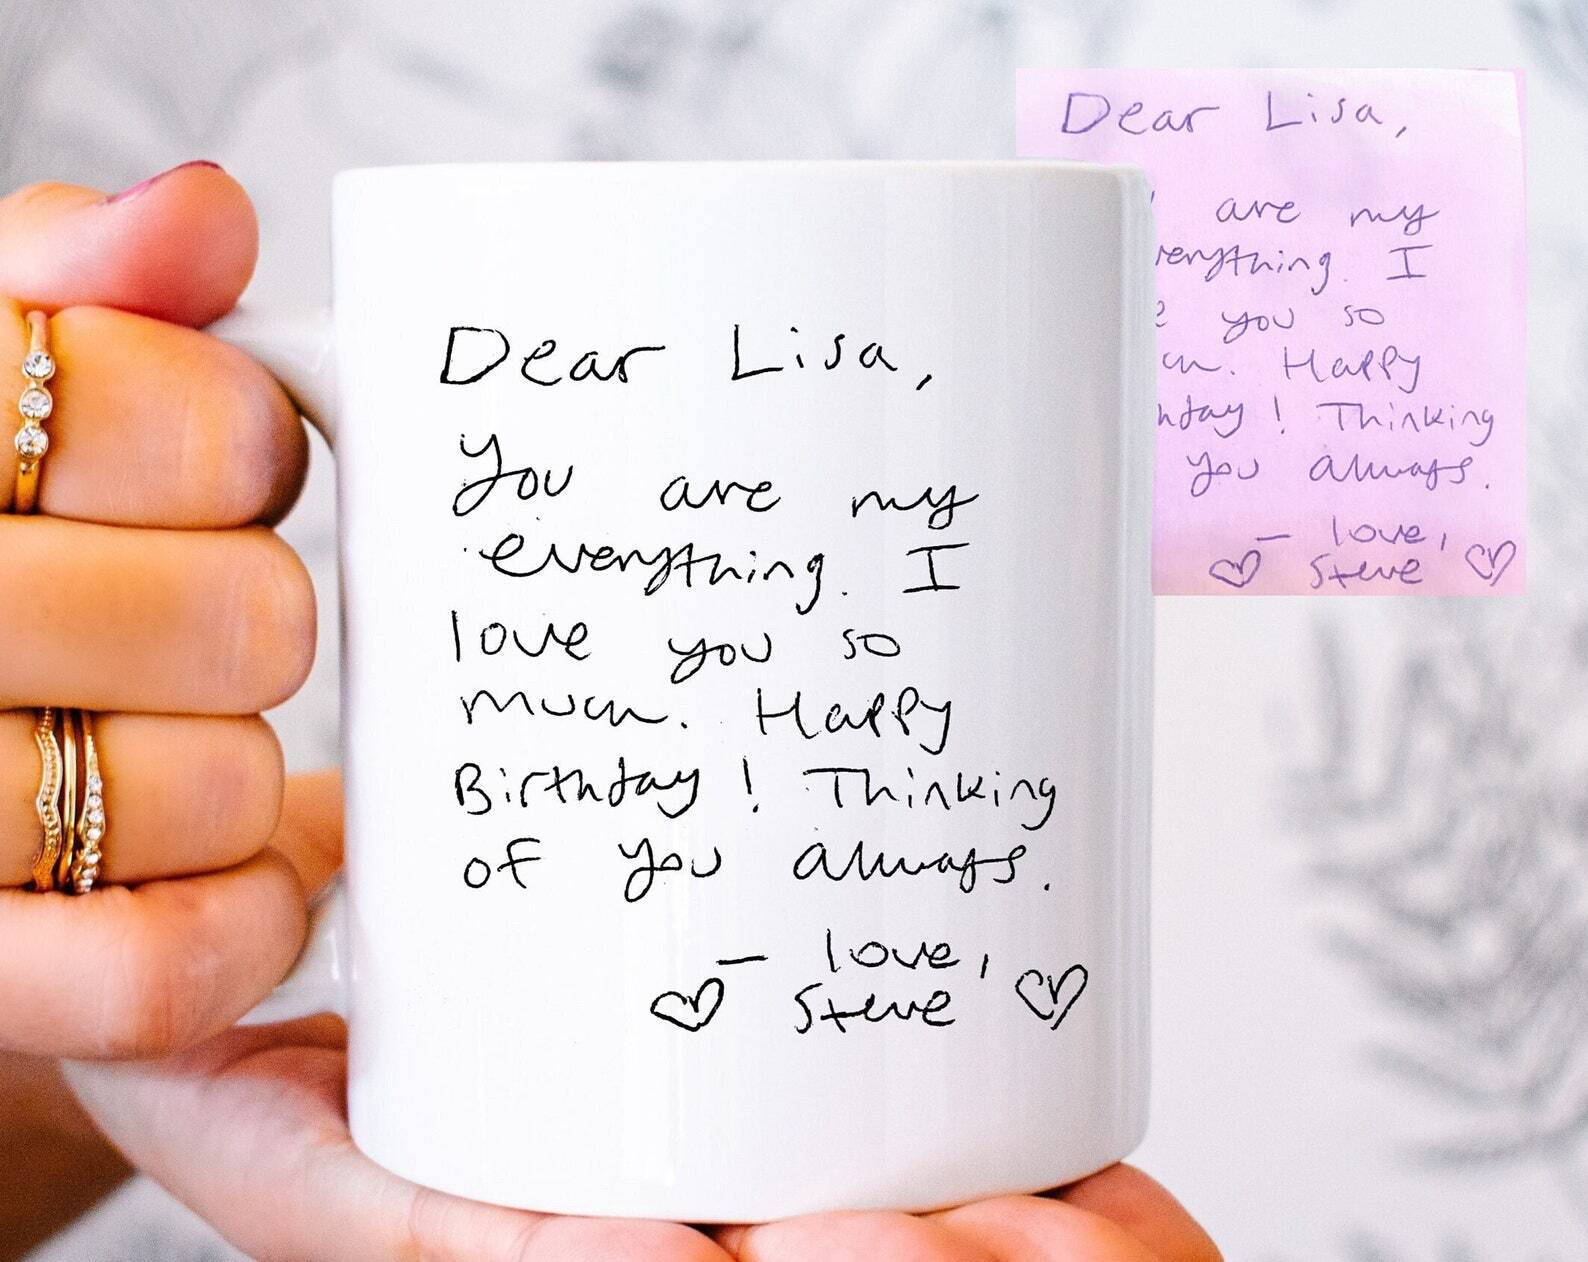 Dear Lisa,
You are my
everything. I
love you so
much. Happy
Birthday! Thinking
of you always.
— love,
♡ Steve ♡
Dear Lisa,
are my
verything. I
you so
Happy
! Thinking
you always.
— love,
♡ Steve ♡